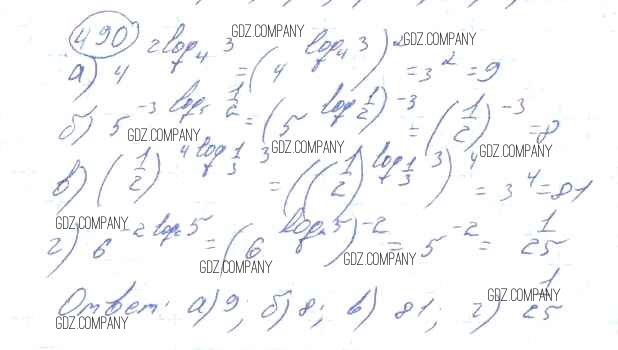 490
а) 4^{2log_4 3} = (4^{log_4 3})^2 = 3^2 = 9
б) 5^{-3 log_5 1/2} = (5^{log 1/2})^{-3} = (1/2)^{-3} = 8
в) (1/2)^{4 log_{1/3} 3} = ((1/2)^{log_{1/3} 3})^4 = 3^4 = 81
г) 6^{-2 log_6 5} = (6^{log_6 5})^{-2} = 5^{-2} = 1/25
Ответ: а) 9; б) 8; в) 81; г) 1/25
GDZ.COMPANY
GDZ.COMPANY
GDZ.COMPANY
GDZ.COMPANY
GDZ.COMPANY
GDZ.COMPANY
GDZ.COMPANY
GDZ.COMPANY
GDZ.COMPANY
GDZ.COMPANY